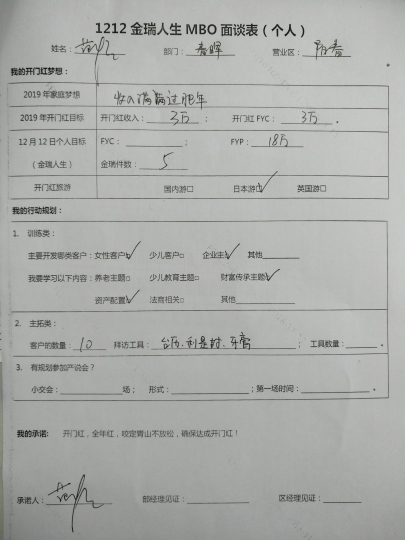 1212金瑞人生MBO面谈表（个人）
姓名： 部门：春晖 营业区：阳春
我的开门红梦想：
2019年家庭梦想 收入满满过肥年
2019年开门红目标 开门红收入：3万； 开门红FYC：3万。
12月12日个人目标 FYC： ； FYP：18万
（金瑞人生） 金瑞件数：5
开门红旅游 国内游□ 日本游□✓ 英国游□
我的行动规划：
1. 训练类：
主要开发哪类客户：女性客户□✓ 少儿客户□ 企业主□✓ 其他
我要学习以下内容：养老主题□ 少儿教育主题□ 财富传承主题□✓
资产配置□✓ 法商相关□ 其他
2. 主拓类：
客户的数量：10 拜访工具：台历、利是封、 ；工具数量： 。
3. 有规划参加产说会？
小交会： 场； 形式： ；第一场时间： 。
我的承诺： 开门红，全年红，咬定青山不放松，确保达成开门红！
承诺人： 部经理见证： 区经理见证：